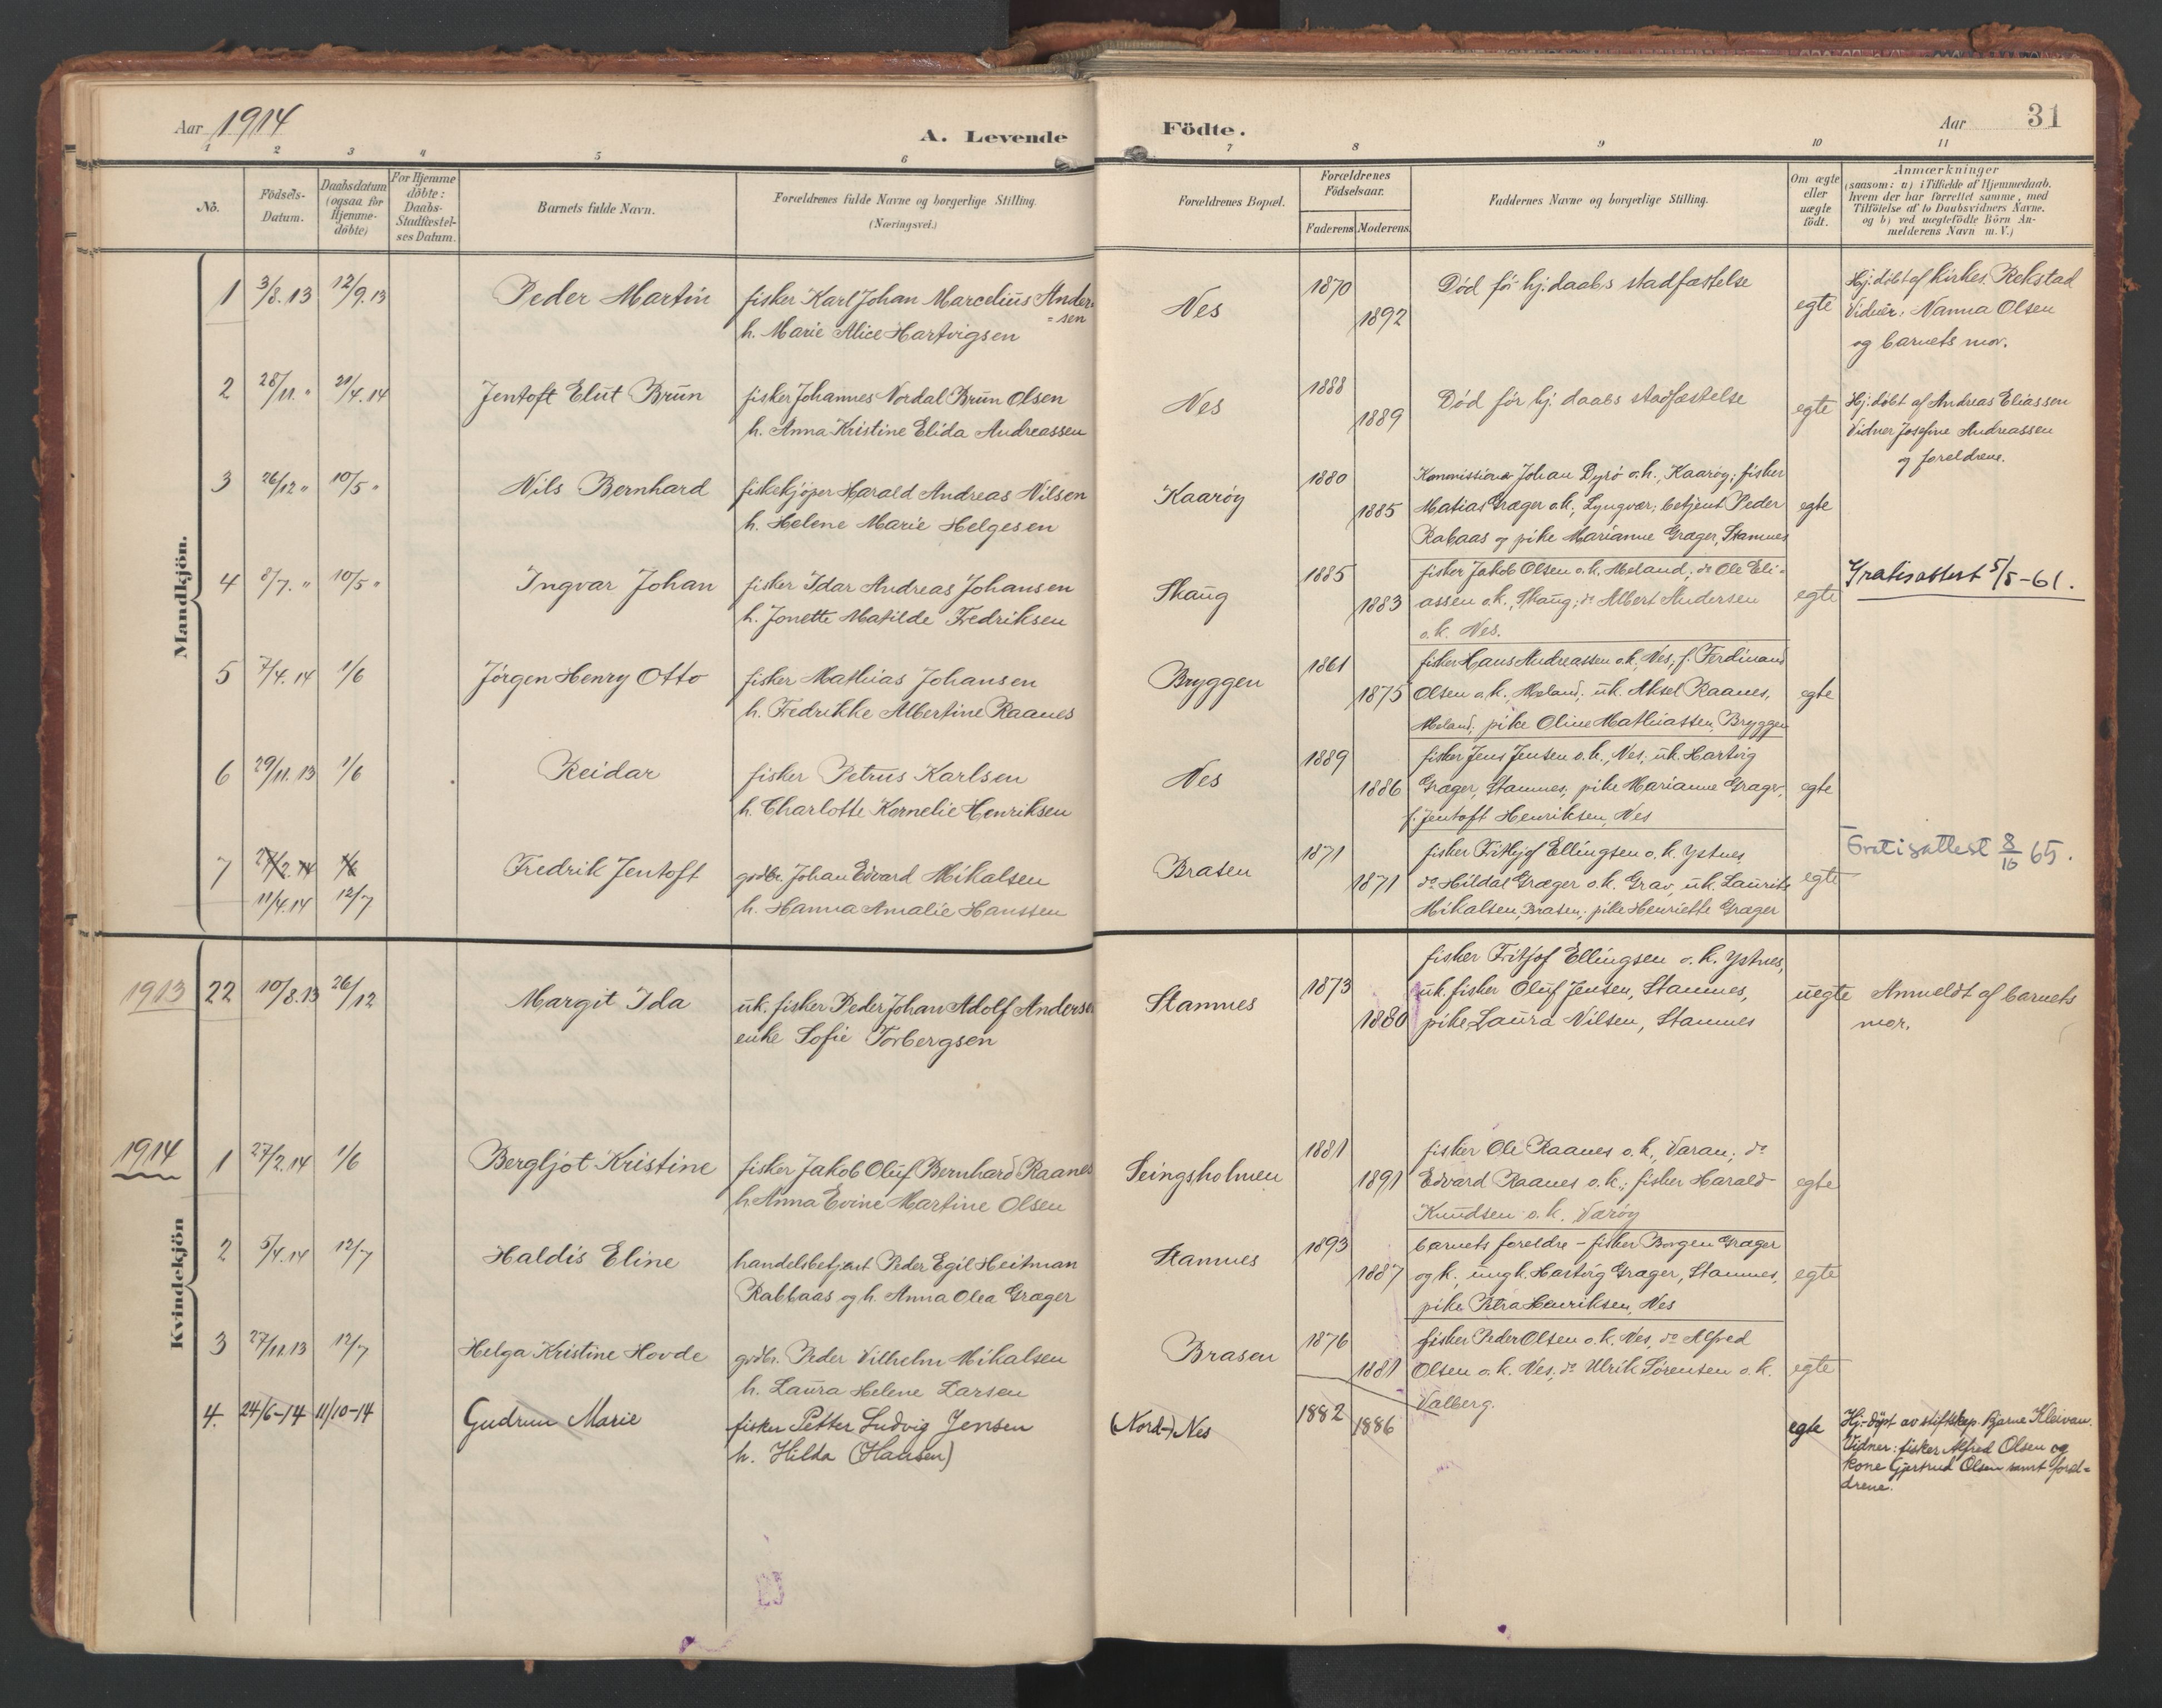 Aar 1914
A. Levende
Födte.
Aar 31
1 2 3 4 5 6 7 8 9 10 11
No.
Födsels-
Datum.
Daabsdatum
(ogsaa for
Hjemme-
döbte)
For Hjemme
döbte:
Daabs-
Stadfæstel-
ses Datum.
Barnets fulde Navn.
Forældrenes fulde Navne og borgerlige Stilling.
(Næringsvei.)
Forældrenes Bopæl.
Forældrenes
Födselsaar.
Faderens Moderens
Faddernes Navne og borgerlige Stilling.
Om ægte
eller
uægte
födt.
Anmærkninger
(saasom: a) i Tilfælde af Hjemmedaab.
hvem der har forrettet samme, med
Tilföielse af to Daabsvidners Navne.
og b) ved uegtefödte Börn An-
melderens Navn m. V.)
Mandkjön.
1 3/8.13 12/9.13 Peder Martin
fisker Karl Johan Marcelius Ander-
=sen
h. Marie Alice Hartvigsen
Nes 1870 1892
Död för hj.daabs stadfæstelse
egte
Hj.döbt af kirkes. Rekstad
Vidner: Nanna Olsen
og barnets mor.
2 28/11. " 21/4.14 Jentoft Elut Brun
fisker Johannes Nordal Brun Olsen
h. Anna Kristine Elida Andreassen
Nes 1888 1889
Död för hj. daabs stadfæstelse
egte
Hj.döbt af Andreas Eliassen
Vidner Josefine Andreassen
og foreldrene.
3 26/12 " 10/5 " Nils Bernhard
fiskekjöper Harald Andreas Nilsen
h. Helene Marie Helgesen
Kaaröy 1880 1885
Kommissionær Johan Dyrö o.h., Kaaröy; fisker
Matias Græger o.k., Lyngvær; betjent Peder
Rabaas og pike Marianne Græger, Stamnes
egte
4 8/7. " 10/5 " Ingvar Johan
fisker Idar Andreas Johansen
h. Jonette Matilde Fredriksen
Skaug 1885 1883
fisker Jakob Olsen o.k. Meland; do Ole Eli-
assen o.k., Skaug; do Albert Andersen
o.k. Nes.
egte
Gratisattest 5/5-61.
5 7/4.14 1/6 Jörgen Henry Otto
fisker Mathias Johansen
h. Fredrikke Albertine Raanes
Bryggen 1861 1875
fisker Hans Andreassen o.k., Nes; f. Ferdinand
Olsen o.k., Meland; uk. Aksel Raanes,
Meland; pike Oline Mathiassen, Bryggen
egte
6 29/11.13 1/6 Reidar
fisker Petrus Karlsen
h. Charlotte Kornelie Henriksen
Nes 1889 1886
fisker Jens Jensen o.k., Nes; uk. Hartvig
Græger, Stamnes, pike Marianne Græger,
f. Jentoft Henriksen, Nes
egte
7 27/2.14 1/6
11/4.14 12/7 Fredrik Jentoft
grdbr. Johan Edvard Mikalsen
h. Hanna Amalie Hanssen
Brasen 1871 1871
fisker Frithjof Ellingsen o.k. Ystnes
do Hildal Græger o.k. Grav, uk. Laurits
Mikalsen, Brasen; pike Henriette Græger
egte
Gratisattest 8/10 65.
1913 22 10/8.13 26/12 Margit Ida
uk. fisker Peder Johan Adolf Andersen
enke Sofie Torbergsen
Stamnes 1873 1880
fisker Fritjof Ellingsen o.k. Ystnes,
uk. fisker Oluf Jensen, Stamnes,
pike Laura Nilsen, Stamnes
uegte
Anmeldt af barnets
mor.
Kvindekjön
1914 1 27/2.14 1/6 Bergljot Kristine
fisker Jakob Oluf Bernhard Raanes
h. Anna Evine Martine Olsen
Seingsholmen 1881 1891
fisker Ole Raanes o.k., Varan; do
Edvard Raanes o.k.; fisker Harald
Knudsen o.k. Væröy
egte
2 5/4.14 12/7 Haldis Eline
handelsbetjent Peder Egil Heitman
Rabbaas og h. Anna Olea Græger
Stamnes 1893 1887
barnets foreldre - fisker Borgen Græger
og k., ungk. Hartvig Græger, Stamnes,
pike Petra Henriksen, Nes
egte
3 27/11.13 12/7 Helga Kristine Hovde
grdbr. Peder Vilhelm Mikalsen
h. Laura Helene Larsen
Brasen 1876 1881
fisker Peder Olsen o.k. Nes, do Alfred
Olsen o.k. Nes, do Ulrik Sörensen o.k.
Valberg.
egte
4. 24/6-14 11/10-14 Gudrun Marie
fisker Petter Ludvig Jensen
h. Hilda (Hansen)
(Nord-)Nes 1882 1886
egte
Hj.-döpt av stiftskap. Bjarne Kleivan.
Vidner: fisker Alfred Olsen og
kone Gjertrud Olsen samt forel-
drene.